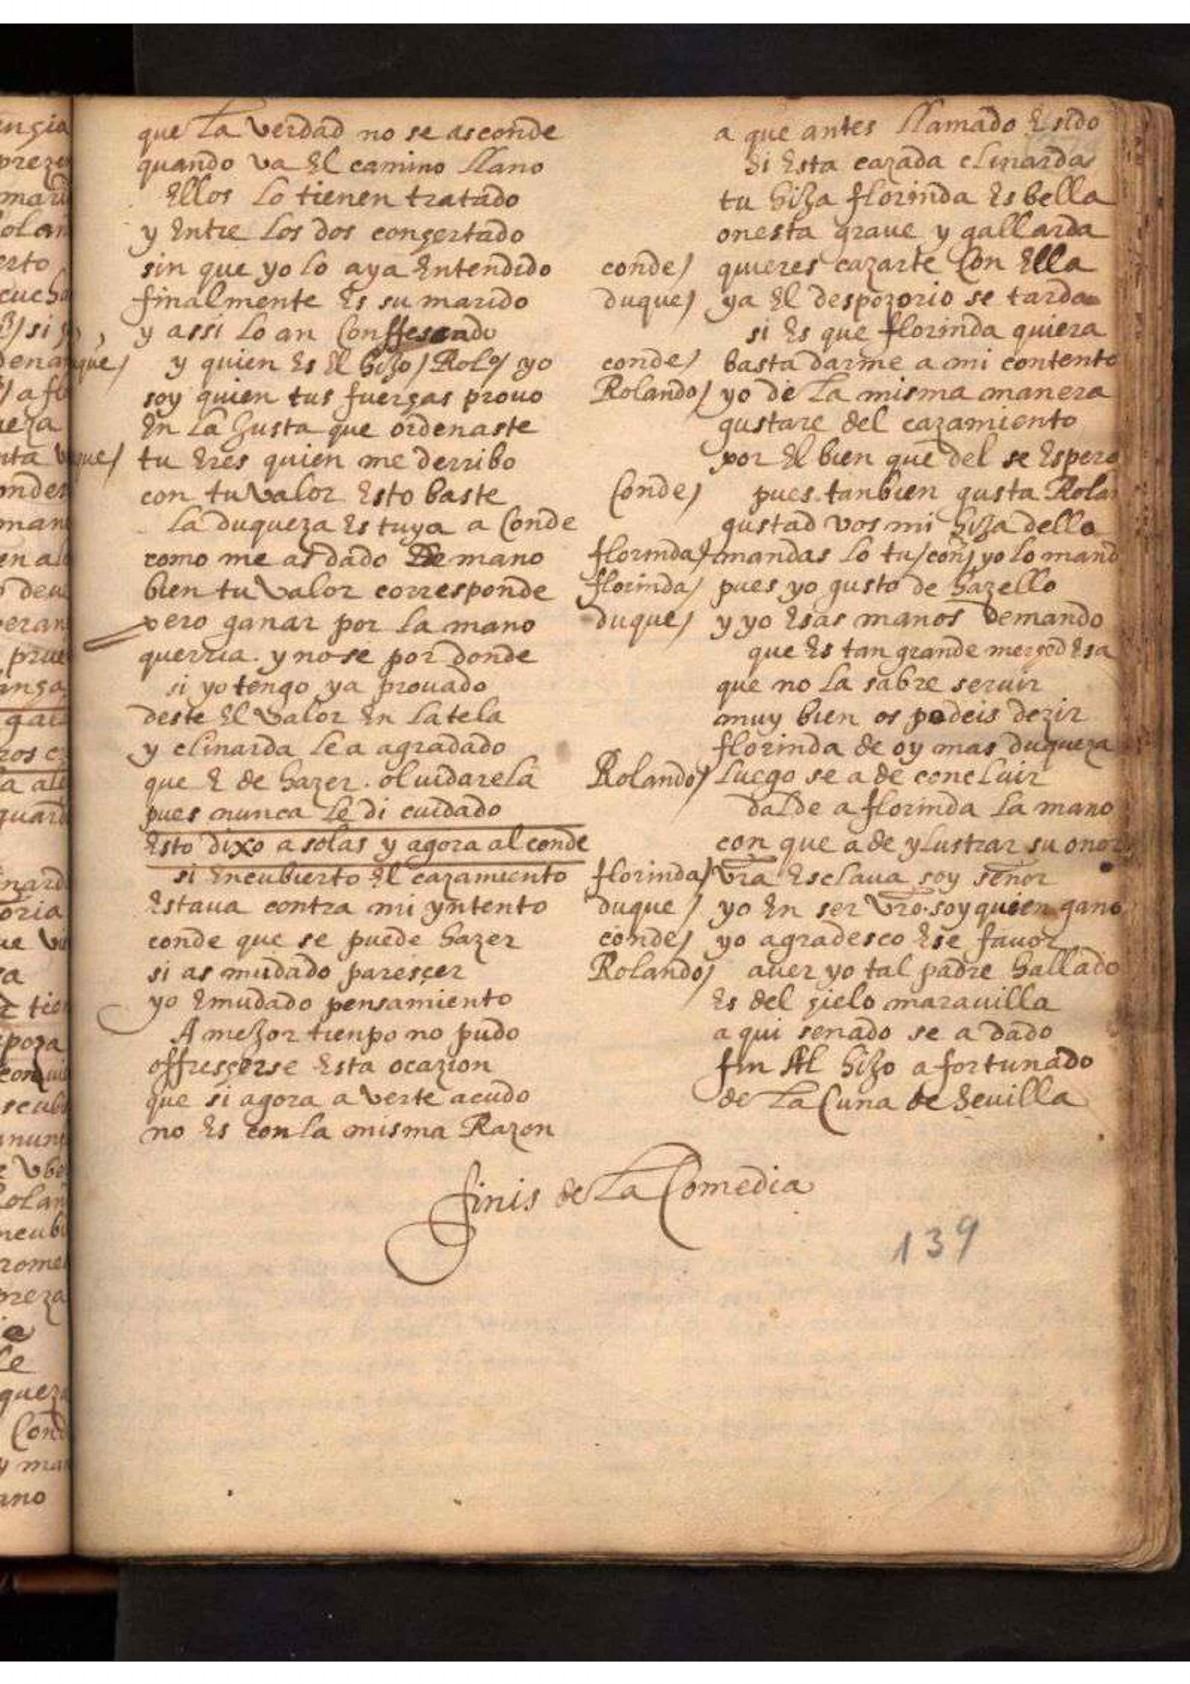 que la verdad no se asconde
quando va El camino llano
Ellos lo tienen tratado
y Entre los dos conçertado
sin que yo lo aya Entendido
finalmente Es su marido
y assi lo an Conffesado
que) y quien Es El hijo / Rolº yo
soy quien tus fuerças prouo
En la Justa que ordenaste
que) tu Eres quien me derribo
con tu valor Esto baste
la duqueza Es tuya a Conde
como me as dado De mano
bien tu valor corresponde
pero ganar por la mano
querria . y no se por donde
si yo tengo ya prouado
deste El valor En la tela
y clinarda le a agradado
que E de hazer . oluidarela
pues nunca le di cuidado
Esto dixo a solas y agora al conde
si Encubierto El cazamiento
Estaua contra mi yntento
conde que se puede hazer
si as mudado paresçer
yo Emudado pensamiento
A mejor tienpo no pudo
offresçerse Esta ocazion
que si agora a verte acudo
no Es con la misma Razon
a que antes llamado E sido
si Esta cazada clinarda
tu hija florinda Es bella
onesta graue y gallarda
conde) quieres cazarte Con Ella
duque) ya El despozorio se tarda
si Es que florinda quiera
conde) basta darme a mi contento
Rolando) yo de la misma manera
gustare del cazamiento
por El bien que del se Espera
Conde) pues tanbien gusta Rolan
gustad vos mi hija dello
florinda) mandas lo tu / con) yo lo mand
florinda) pues yo gusto de hazello
duque) y yo Esas manos demando
que Es tan grande merçed Esa
que no la sabre seruir
muy bien os podeis dezir
florinda de oy mas duqueza
Rolando) luego se a de concluir
dalde a florinda la mano
con que a de ylustrar su onor
florinda) vra Esclaua soy señor
duque) yo En ser vro . soy quien gano
conde) yo agradesco Ese fauor
Rolando) auer yo tal padre hallado
Es del zielo marauilla
a qui senado se a dado
fin Al hijo a fortunado
de La Cuna de Seuilla
finis de La Comedia
139